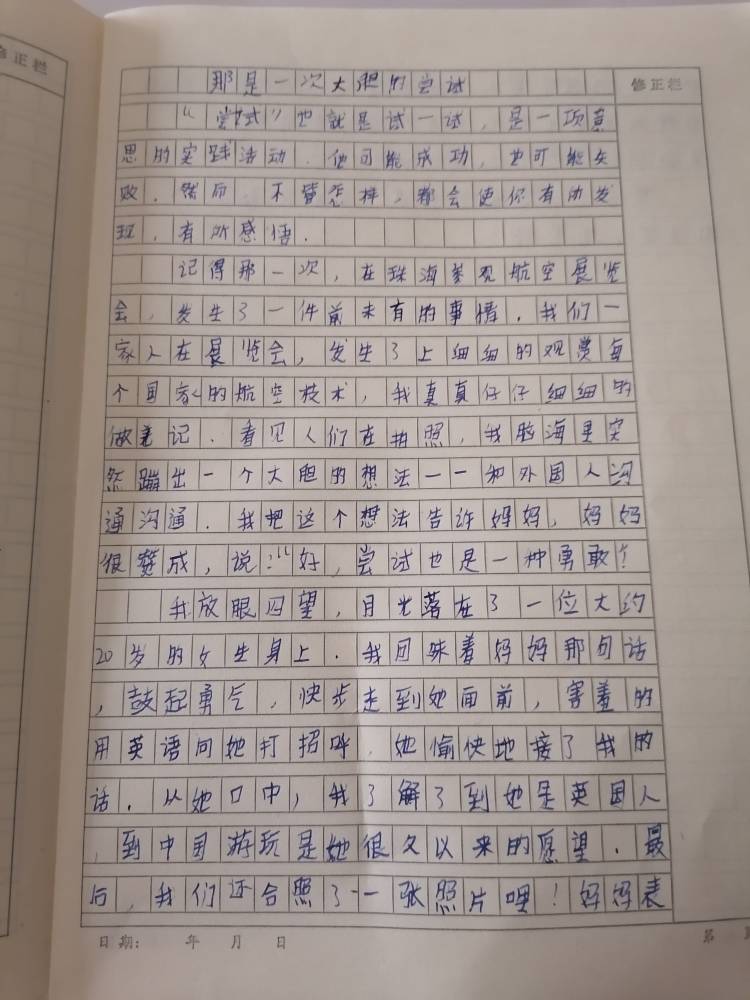 修正栏
修正栏
那是一次大胆的尝试
“尝试”也就是试一试，是一项真
思的实践活动．他可能成功，也可能失
败．然而 不管怎样，都会使你有所发
现，有所感悟．
记得那一次，在珠海参观航空展览
会，发生了一件前未有的事情．我们一
家人在展览会，发生了上细细的观赏每
个国家的航空技术，我真真仔仔细细的
做着记．看见人们在拍照，我脑海里突
然蹦出一个大胆的想法——和外国人沟
通沟通．我把这个想法告许妈妈，妈妈
很赞成，说：“好，尝试也是一种勇敢！
我放眼四望，目光落在了一位大约
20岁的女生身上．我回味着妈妈那句话
，鼓起勇气，快步走到她面前，害羞的
用英语问她打招呼．她愉快地接了我的
话．从她口中，我了解了到她是英国人
，到中国游玩是她很久以来的愿望．最
后，我们还合照了一张照片哩！妈妈表
日期： 年 月 日
第